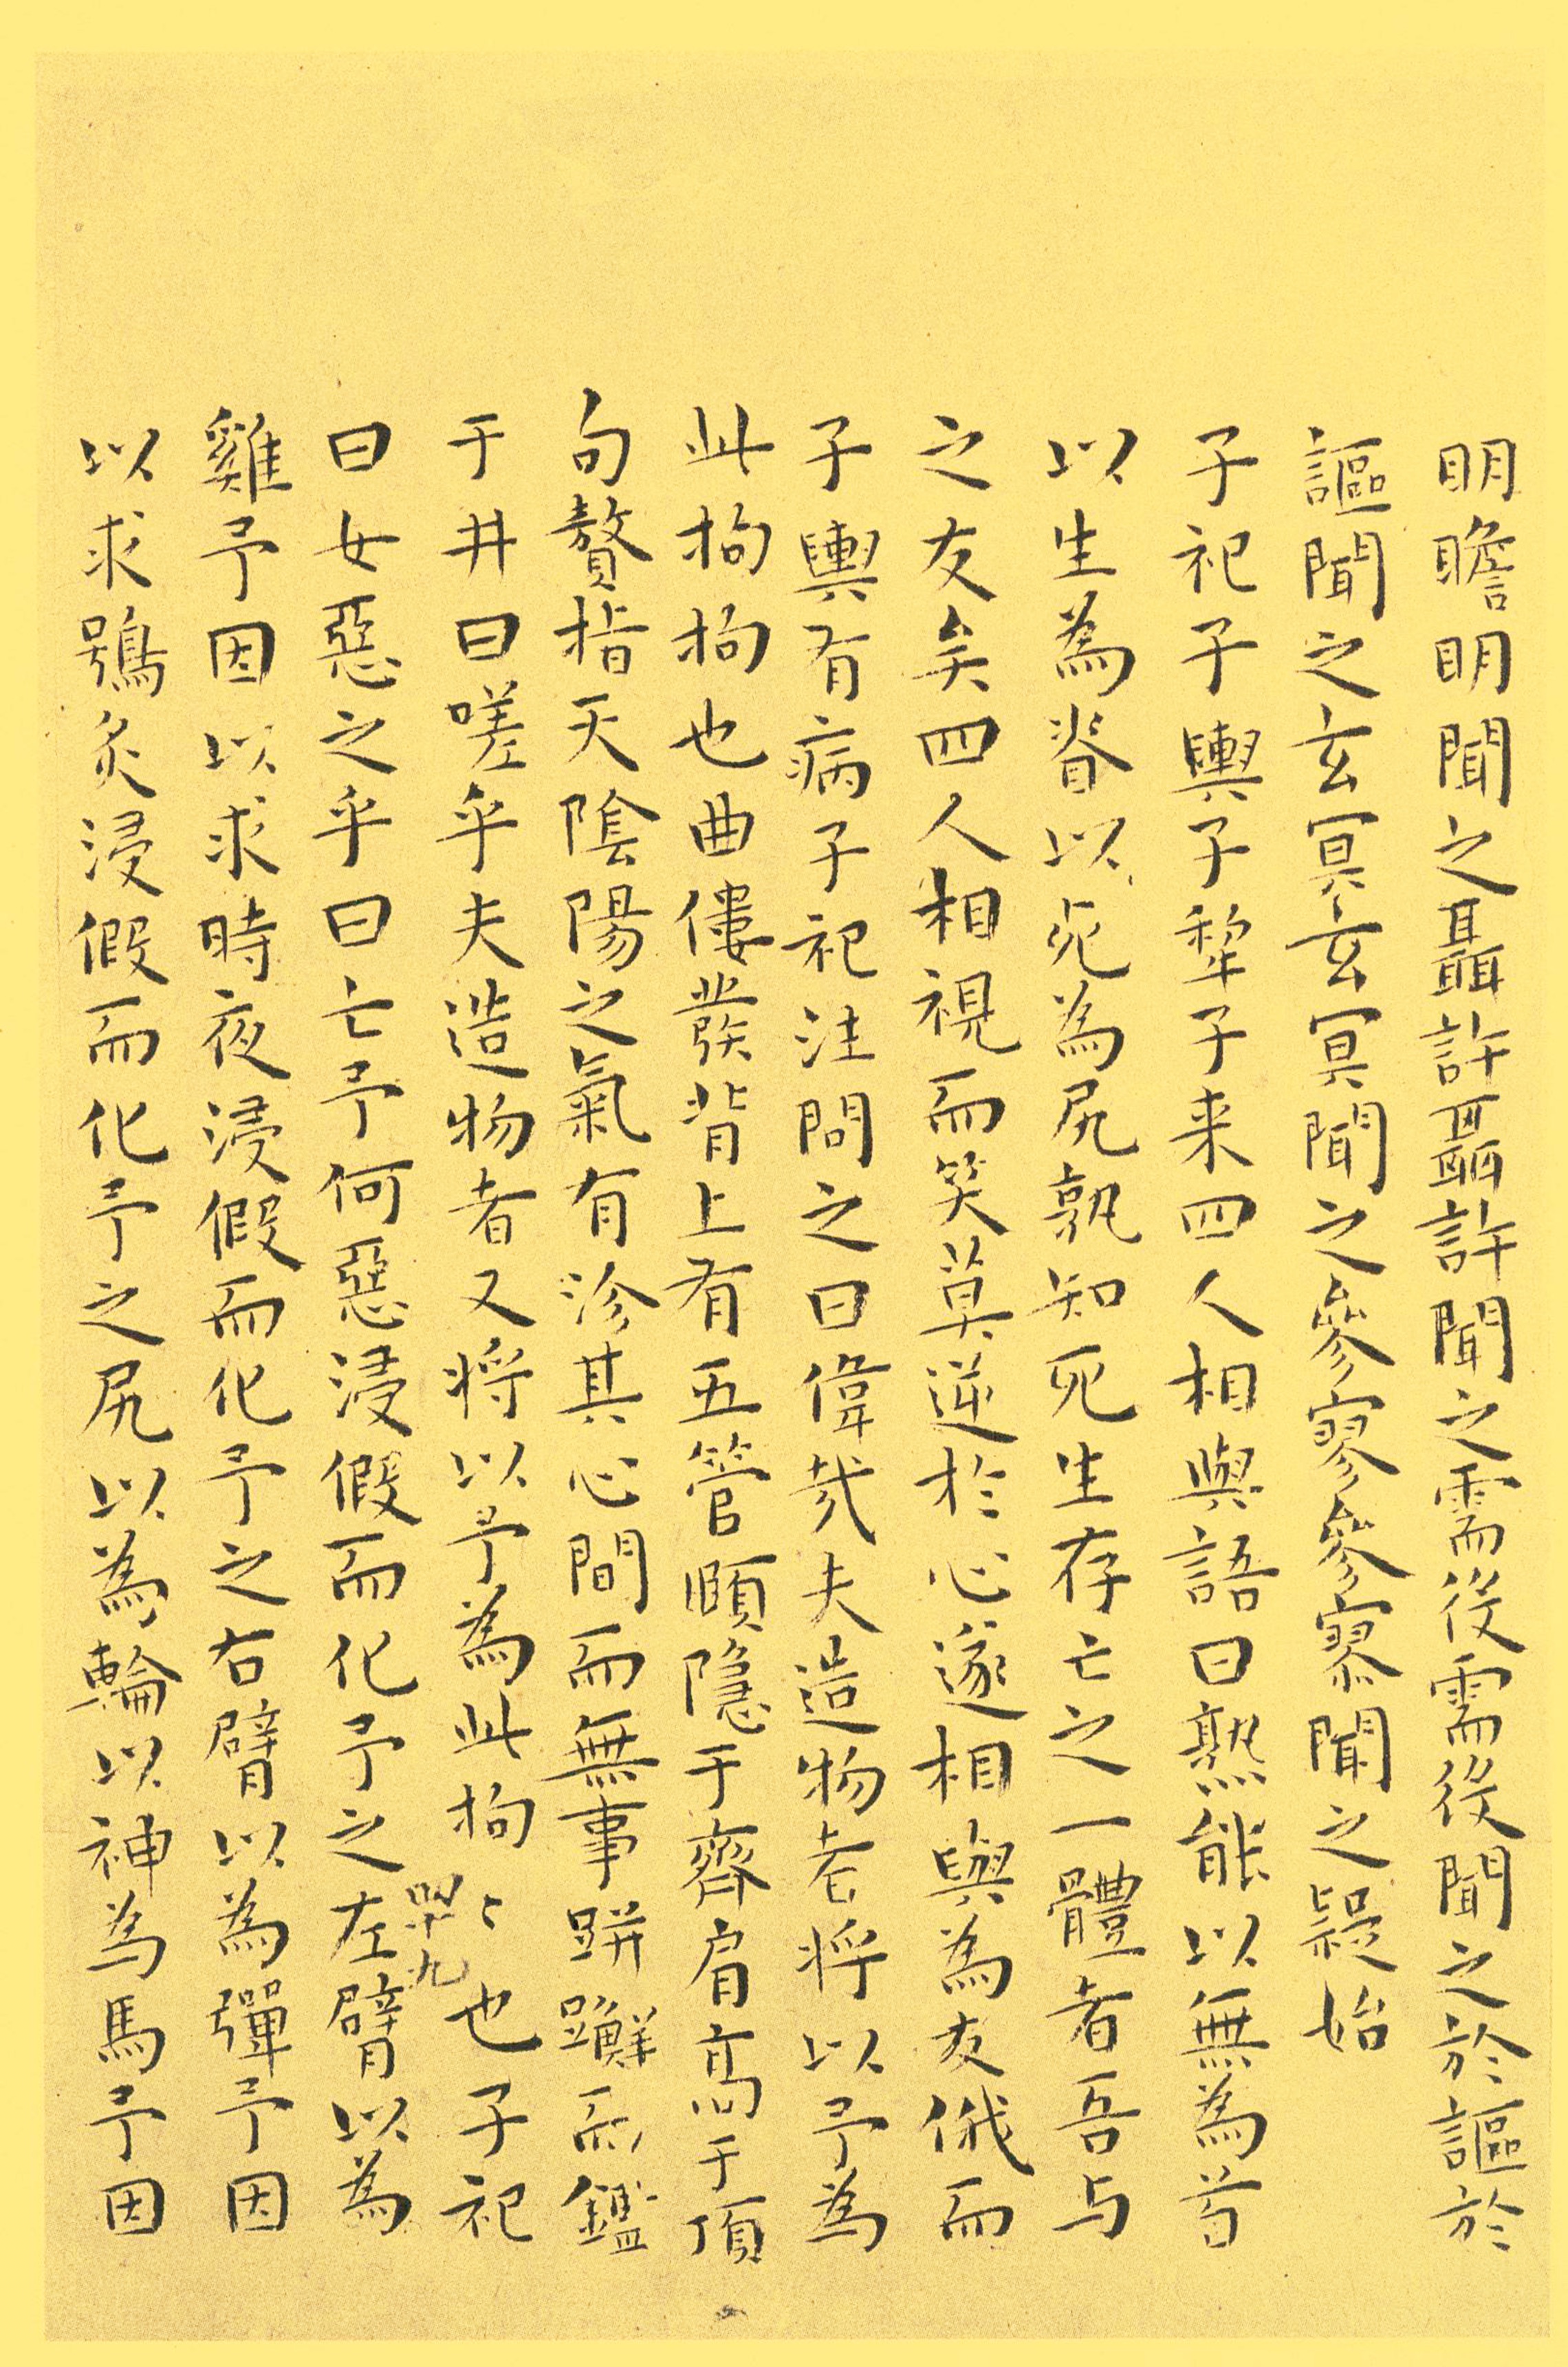 明瞻明聞之聶許聶許聞之需役需役聞之於謳於
謳聞之玄冥玄冥聞之參寥參寥聞之疑始
子祀子輿子犂子来四人相與語曰熟能以無為首
以生為脊以死為尻孰知死生存亡之一體者吾与
之友矣四人相視而笑莫逆於心遂相與為友俄而
子輿有病子祀往問之曰偉哉夫造物者将以予為
此拘拘也曲僂發背上有五管頤隱于齊肩高于頂
句贅指天陰陽之氣有沴其心間而無事跰𨇤而鑑
于井曰嗟乎夫造物者又将以予為此拘〻也子祀
曰女惡之乎曰亡予何惡浸假而化予之左臂以為
雞予因以求時夜浸假而化予之右臂以為彈予因
以求鴞炙浸假而化予之尻以為輪以神為馬予因